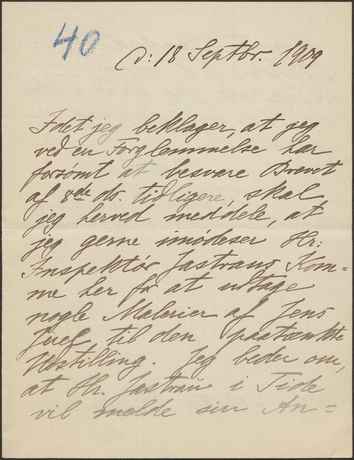 40
d: 18 Septbr. 1909
Idet jeg beklager, at jeg
ved en Forglemmelse har
forsømt at besvare Brevet
af 8de ds. tidligere, skal
jeg herved meddele, at
jeg gerne imødeser Hr:
Inspektør Jastraus Kom=
me her for at udtage
nogle Malerier af Jens
Juel, til den paatænkte
Udstilling. Jeg beder om,
at Hr. Jastrau i Tide
vil melde sin An=